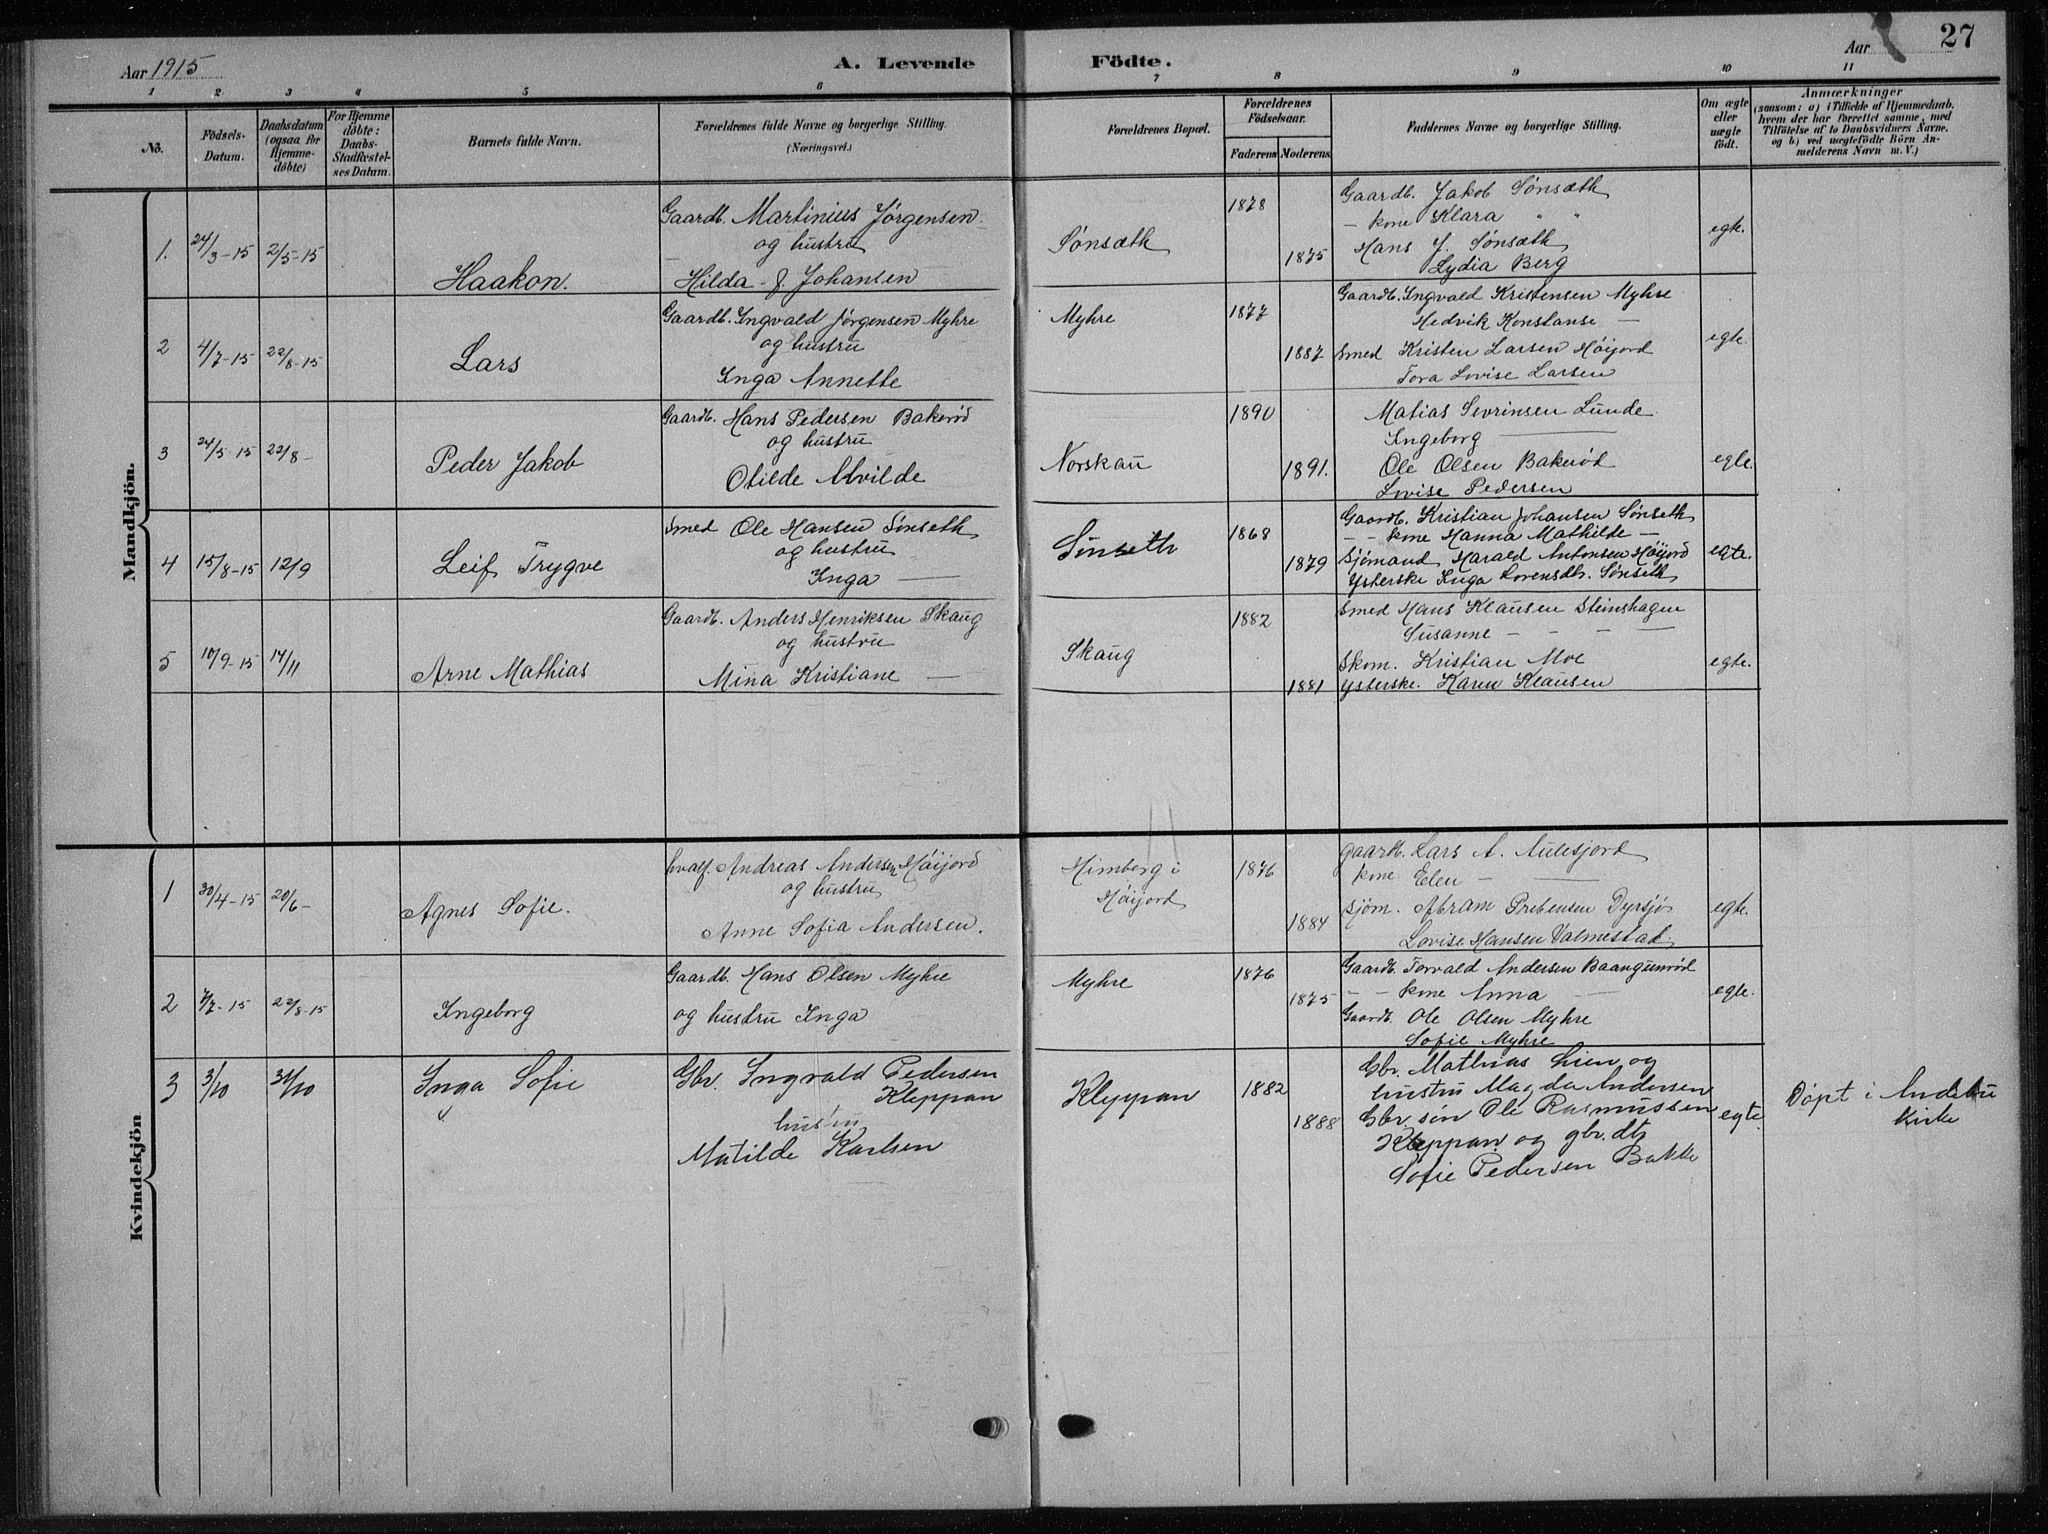 Aar 1915
A. Levende Födte.
Aar
27
1 2 3 4 5 6 7 8 9 10 11
No.
Födsels-Datum.
Daabsdatum (ogsaa for Hjemme-döbte)
For Hjemme döbte: Daabs-Stadfæstel-ses Datum.
Barnets fulde Navn.
Forældrenes fulde Navne og borgerlige Stilling.
(Næringsvei.)
Forældrenes Bopæl.
Forældrenes Födselsaar.
Faderens Moderens.
Faddernes Navne og borgerlige Stilling.
Om ægte eller uægte födt.
Anmærkninger
(saasom: a) i Tilfælde af Hjemmedaab,
hvem der har forrettet samme, med
Tilföielse af to Daabsvidners Navne,
og b) ved uægtefödte Börn An-
melderens Navn m. V.)
Mandkjön.
1. 24/3-15 2/5-15 Haakon.
Gaardb. Martinius Jørgensen
og hustru
Hilda J. Johansen
Sønsæth
1878
1875
Gaardb. Jakob Sønsæth
- kone Klara " "
Hans J. Sønsæth
Lydia Berg
egte.
2 4/7-15 22/8-15 Lars
Gaardb. Ingvald Jørgensen Myhre
og hustru
Inga Annette
Myhre
1877
1887
Gaardb. Ingvald Kristensen Myhre
Hedvik Konstanse —
Smed Kristen Larsen Høijord
Tora Lovise Larsen
egte.
3 24/5-15 22/8- Peder Jakob
Gaardb. Hans Pedersen Bakerød
og hustru
Otilde Alvilde
Norskau
1890
1891.
Matias Sevrinsen Lunde
Ingeborg —
Ole Olsen Bakerød
Lovise Pedersen
egte.
4 15/8-15 12/9 Leif Trygve
Smed Ole Hansen Sønseth
og hustru
Inga —
Sønseth
1868
1879
Gaardb. Kristian Johansen Sønseth
- - kone Hanna Mathilde —
Sjømand Harald Antonsen Høijord
Ysterske Inga Lorensdtr. Sønseth
egte.
5 10/9-15 14/11 Arne Mathias
Gaardb. Anders Henriksen Skaug
og hustru
Mina Kristiane —
Skaug
1882
1881
Smed Hans Klausen Steinshagen
Susanne - - - —
Skom. Kristian Moe
Ysterske. Karen Klausen
egte.
Kvindekjön
1 30/4-15 20/6- Agnes Sofie.
hvalf. Andreas Andersen Høijord
og hustru
Anne Sofia Andersen.
Himberg i
Høijord
1876
1884
Gaardb. Lars A. Aulesjord
kone Elen - —
Sjøm. Abram Prebensen Dyrsjø
Lovise Hansen Valmestad
egte.
2 7/7-15 22/8-15 Ingeborg
Gaardb. Hans Olsen Myhre
og hustru Inga
Myhre
1876
1875
Gaardb. Torvald Andersen Baangunrød
- - kone Anna —
Gaardb. Ole Olsen Myhre
Sofie Myhre
egte.
3 3/10 31/10 Inga Sofie
Gbr. Ingvald Pedersen
Kleppan
hustru
Matilde Karlsen
Kleppan
1882
1888
Gbr. Mathias Lien og
hustru Magda Andersen
Gbr. søn Ole Rasmussen
Kleppan og gbr. dtr
Sofie Pedersen Bakke
egte.
Døpt i Andebu
Kirke